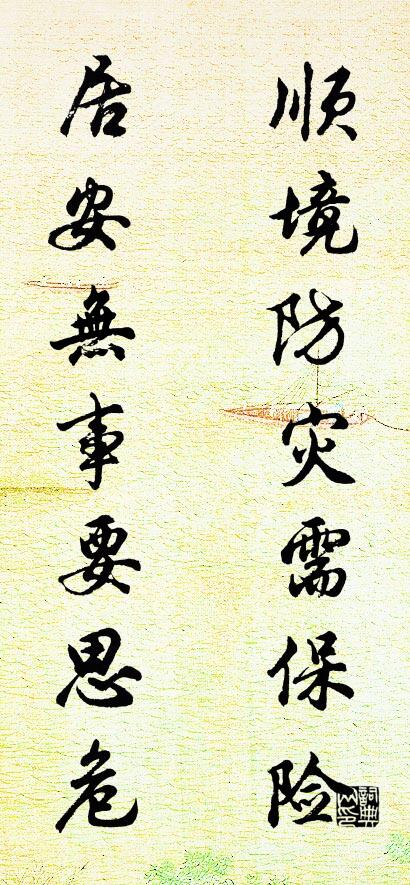 顺境防灾需保险
居安無事要思危